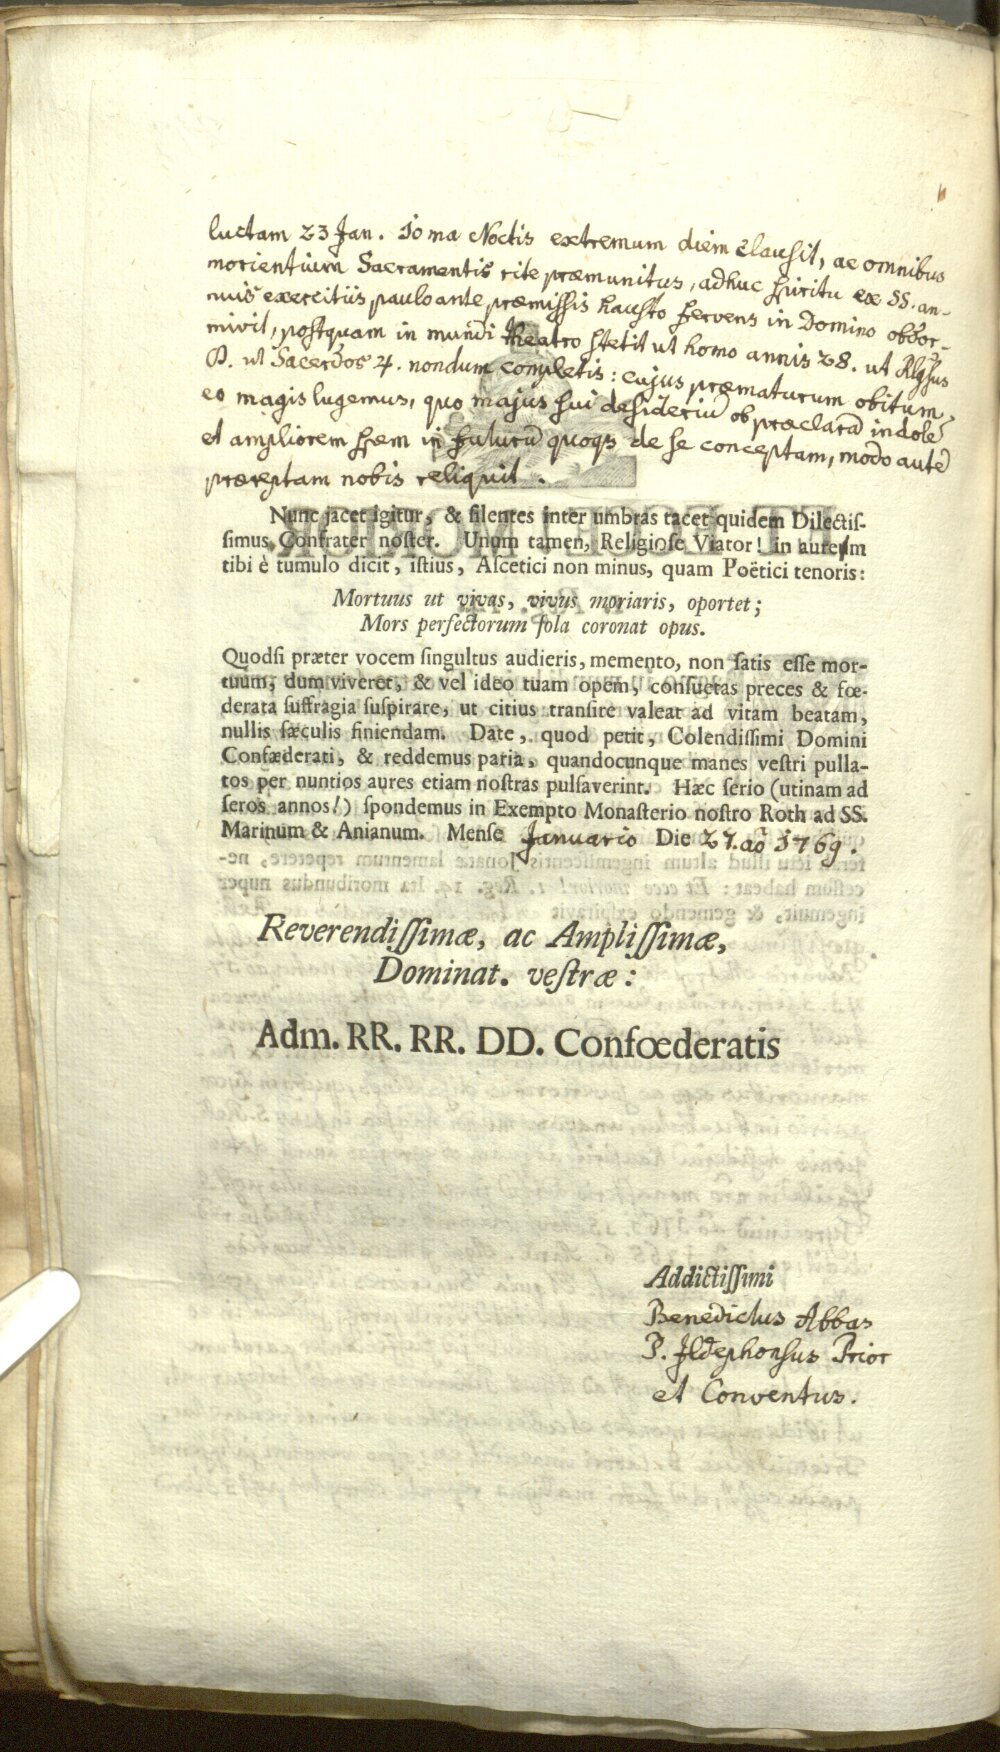 luctam 23 Jan. 10ma Noctis extremum diem clausit, ac omnibus
morientium Sacramentis rite præmunitus, adhuc spiritu ex SS. an-
nuis exercitiis paulo ante præmissis hausto fervens in Domino obdor-
mivit, postquam in mundi theatro stetit ut homo annis 28. ut Rlgsus
ut Sacerdos 4. nondum completis: cujus præmaturum obitum,
eo magis lugemus, quo majus sui desideriū ob præclarā indolē
et ampliorem spem in futurū quoqs de se conceptam, modo autē
præreptam nobis reliquit.
Nunc jacet igitur, & silentes inter umbras tacet quidem Dilectis-
simus Confrater noster. Unum tamen, Religiose Viator! in aurem
tibi è tumulo dicit, istius, Ascetici non minus, quam Poëtici tenoris:
Mortuus ut vivas, vivus moriaris, oportet;
Mors perfectorum sola coronat opus.
Quodsi præter vocem singultus audieris, memento, non satis esse mor-
tuum, dum viveret, & vel ideo tuam opem, consuetas preces & fœ-
derata suffragia suspirare, ut citius transire valeat ad vitam beatam,
nullis sæculis finiendam. Date, quod petit, Colendissimi Domini
Confæderati, & reddemus paria, quandocunque manes vestri pulla-
tos per nuntios aures etiam nostras pulsaverint. Hæc serio (utinam ad
seros annos!) spondemus in Exempto Monasterio nostro Roth ad SS.
Marinum & Anianum. Mense Januario Die 27. aō 1769.
Reverendissimæ, ac Amplissimæ,
Dominat. vestræ:
Adm. RR. RR. DD. Confœderatis
Addictissimi
Benedictus Abbas
P. Ildephonsus Prior
et Conventus.